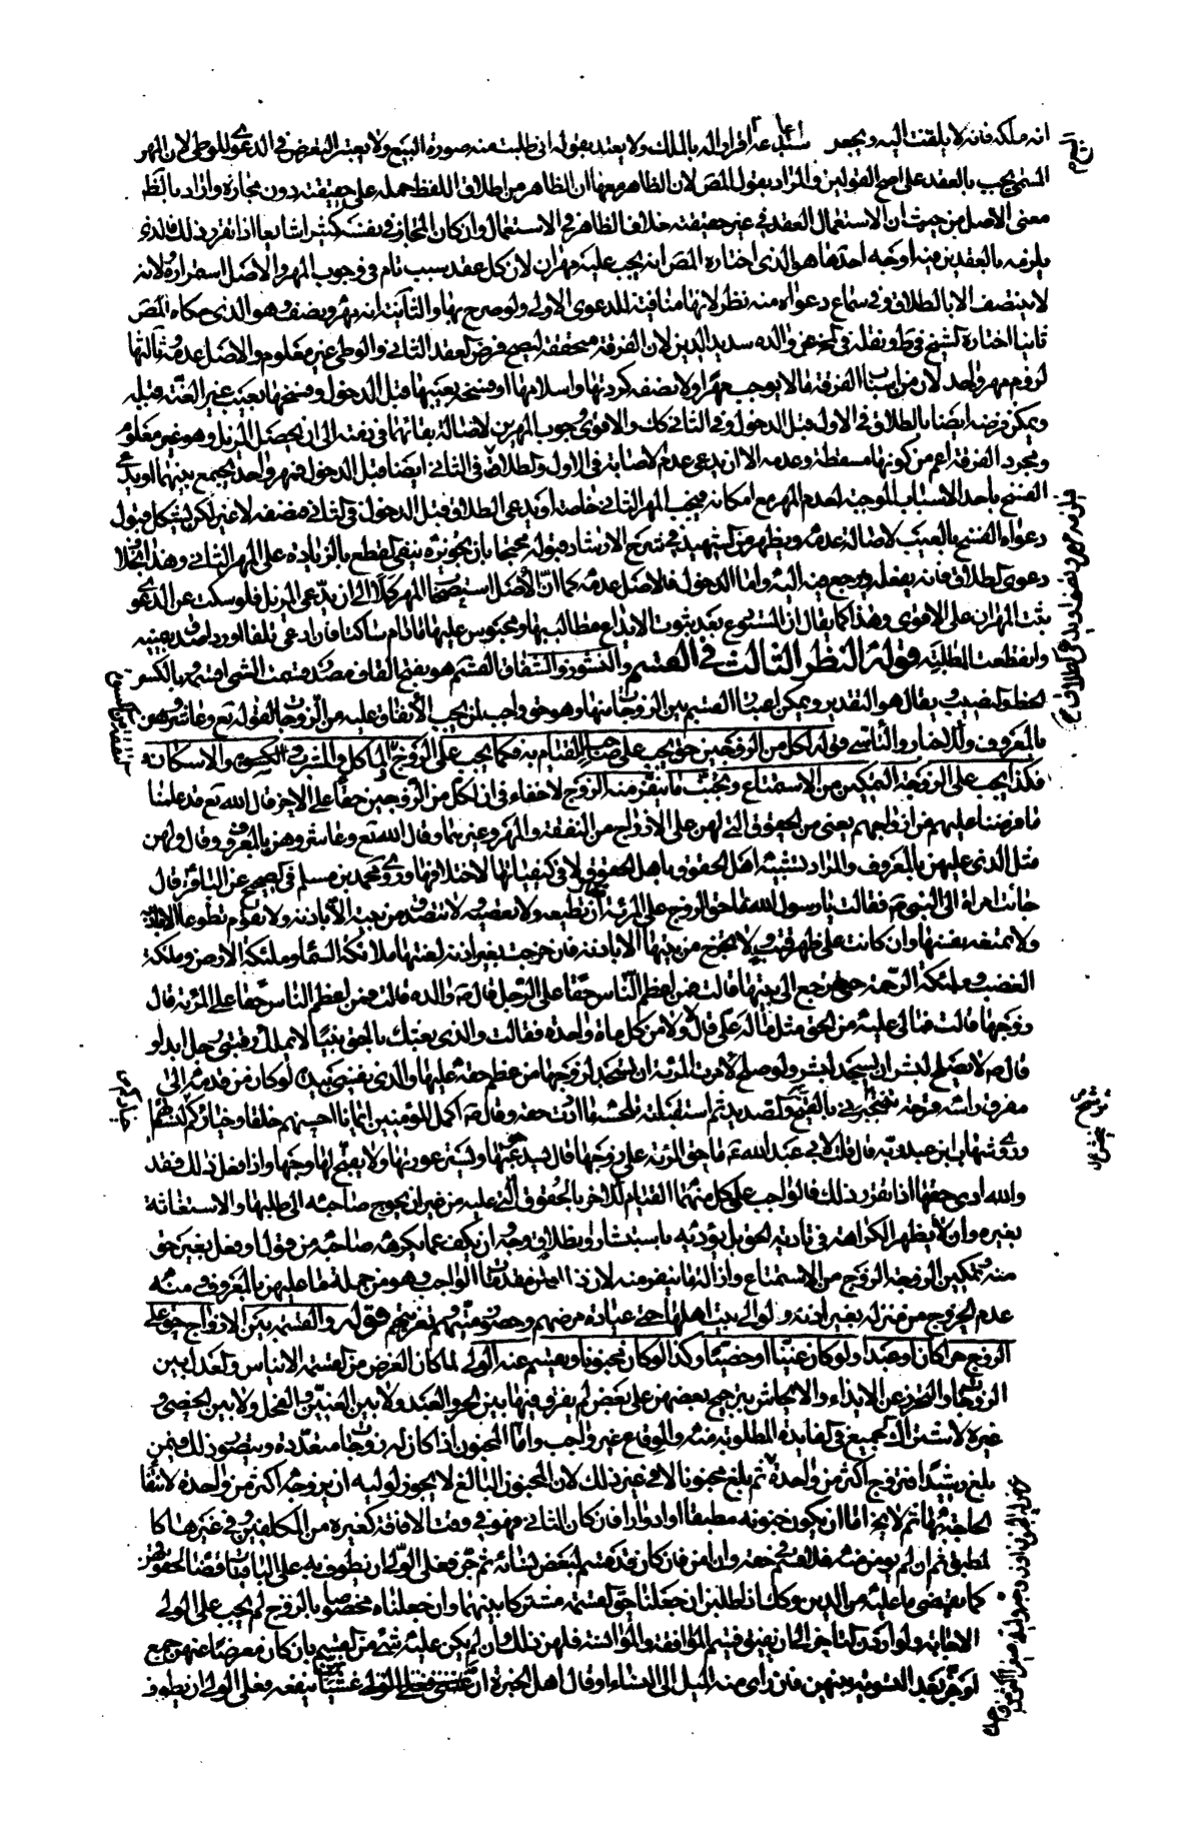 انه ملكه فانه لا يلتفت اليه ويجعد استدعاءه اقرارا له بالملك ولا يعتد بقوله انى طلبت منه صورة البيع ولا يعتبر التعرض فى الدعوى للوطى لان المهر
المسمى يجب بالعقد على اصح القولين والمراد بقول المص لان الظاهر معها ان الظاهر من اطلاق اللفظ حمله على حقيقته دون مجازه واراد بالظ
معنى الاصل من حيث ان الاستعمال العقد فى غير حقيقته خلاف الظاهر فى الاستعمال وان كان المجاز فى نفسه كثيرا شايعا اذا تقرر ذلك فالذى
يلزمه بالعقدين فيه اوجه احدها هو الذى اختاره المص انه يجب عليه مهران لان كل عقد سبب تام فى وجوب المهر والاصل استمراره لانه
لا ينتصف الا بالطلاق وفى سماع دعواه منه نظر لانها منافية للدعوى الاولى ولو صرح بها والثانية انه مهر ونصف وهو الذى حكاه المص
ثانيا اختاره الشيخ فى ط ونقله فى عن والده سديد الدين لان الفرقة متحققة ليصح فرض العقد الثانى والوطى غير معلوم والاصل عدمه وثالثها
لزوم مهر واحد لان من اسباب الفرقة ما لا يوجب مهرا ولا نصفه كردتها واسلامها او فسخه بعيبها قبل الدخول وفسخها بعيب غير العنة قبله
ويمكن فرضه ايضا بالطلاق فى الاول قبل الدخول وفى الثانى كك والاقوى وجوب المهرين لاصالة بقائهما فى ذمته الى ان يحصل المزيل وهو غير معلوم
ومجرد الفرقة اعم من كونها مسقطة وعدمه الا ان يدعى عدم الاصابة فى الاول والطلاق فى الثانى ايضا قبل الدخول فمهر واحد يجمع بينهما او يدعى
الفسخ باحد الاسباب الموجبة لعدم المهر مع امكانه فيجب المهر الثانى خاصة او يدعى الطلاق قبل الدخول فى الثانى فنصفه لا غير لكن يشكل قبول
دعواه الفسخ بالعيب لاصالة عدمه ويظهر من الشهيد فى شرح الارشاد قبوله محتجا بان تجويزه ينفى القطع بالزيادة على المهر الثانى وهذا بخلاف
دعوى الطلاق فانه يفعله ويرجع فيه اليه واما الدخول فالاصل عدمه كما ان الاصل استصحاب المهر كملا الى ان يدعى المزيل فلو سكت عن الدعوى
ثبت المهران على الاقوى وهذا كما يقال ان المستودع بعد ثبوت الايداع مطالب بها ومحبوس عليها ما دام ساكتا فان ادعى تلفا او ردا صدق بيمينه
وانقطعت الطلبة قوله النظر الثالث فى القسم والنشوز والشقاق القسم هو بفتح القاف مصدر قسمت الشئ اقسمه وبالكسر
الحظ والنصيب ويقال هو التقدير ويمكن اعتبار القسم بين الزوجات منها وهو حق واجب لمن يجب الانفاق عليه من الزوجات لقوله تع وعاشروهن
بالمعروف وللاخبار والتاسى قوله لكل من الزوجين حق يجب على صاحبه القيام به فكما يجب على الزوج الماكل والمشرب والكسوة والاسكان
فكذا يجب على الزوجة التمكين من الاستمتاع وتجنب ما يتنفر منه الزوج لا خفاء فى ان لكل من الزوجين حقا على الاخر قال الله تع قد علمنا
ما فرضنا عليهم فى ازواجهم يعنى من الحقوق التى لهن على الازواج من النفقة والمهر وغيرهما وقال الله تع وعاشروهن بالمعروف وقال ولهن
مثل الذى عليهن بالمعروف والمراد تشبيه اصل الحقوق باصل الحقوق لا فى كيفياتها لاختلافها وروى محمد بن مسلم فى الصحيح عن الباقر قال
جائت امراة الى النبى ص فقالت يا رسول الله ما حق الزوج على المرئة قال ان تطيعه ولا تعصيه ولا تتصدق من بيته الا باذنه ولا تصوم تطوعا الا باذنه
ولا تمنعه نفسها وان كانت على ظهر قتب ولا تخرج من بيتها الا باذنه فان خرجت بغير اذنه لعنتها ملائكة السماء وملئكة الارض وملئكة
الغضب وملئكة الرحمة حتى ترجع الى بيتها قالت فمن اعظم الناس حقا على الرجل قال ص والده قالت فمن اعظم الناس حقا على المرئة قال
زوجها قالت فما لى عليه من الحق مثل ما له على قال لا ولا من كل ماة واحدة فقالت والذى بعثك بالحق نبيا لا يملك رقبتى رجل ابدا
قال ص لا يصلح لبشر ان يسجد لبشر ولو صلح لامرت المرئة ان تسجد لزوجها من عظم حقه عليها والذى نفسى بيده لو كان من قدمه الى
مفرق راسه قرحة تنبجس بالقيح والصديد ثم استقبلته تلحسه ما ادت حقه وقال ص اكمل المؤمنين ايمانا احسنهم خلقا وخياركم
وروى شهاب بن عبد ربه قال قلت لابى عبد الله ع ما حق المرئة على زوجها قال يسد جوعتها ويستر عورتها ولا يقبح لها وجها واذا فعل ذلك فقد
والله ادى حقها اذا تقرر ذلك فالواجب على كل منهما القيام للاخر بالحقوق التى عليه من غير ان يحوج صاحبه الى طلبها والاستعانة
بغيره وان لا يظهر الكراهة فى تادية الحق بل يؤديه باستبشار وطلاقة وجه وان يكف عما يكرهه صاحبه من قول او فعل بغير حق
منه وتمكين الزوجة الزوج من الاستمتاع وازالتها ما ينفر منه لان ذلك من مقدمات الواجب وهو من جملة ما عليهن بالمعروف ومنه
عدم الخروج من منزله بغير اذنه ولو الى بيت اهلها حتى عيادة مرضهم وحضور ميتهم وتعزيتهم قوله والقسمة بين الازواج حق على
الزوج حرا كان او عبدا ولو كان عنينا او خصيا وكذا لو كان مجنونا ويقسم عنه الولى لما كان الغرض من القسمة الايناس والعدل بين
الزوجات والتحرز عن الايذاء والايحاش بترجيح بعضهن على بعض لم يفرق فيها بين الحر والعبد ولا بين العنين والفحل ولا بين الخصى و
غيره لاشتراك الجميع فى الفايدة المطلوبة منه والوقاع غير واجب واما المجنون اذا كان له زوجات متعددة ويتصور ذلك فيمن
بلغ رشيدا فتزوج اكثر من واحدة ثم بلغ مجنونا لا فى غير ذلك لان المجنون البالغ لا يجوز لوليه ان يزوجه اكثر من واحدة لانتفاء
الحاجة فيها ثم لا يخ اما ان يكون جنونه مطبقا او ادوارا فان كان الثانى فهو فى وقت الافاقة كغيره من المكلفين وفى غيرها كا
لمطبق ثم ان لم يومن منه فلا قسم فى حقه وان امن فان كان قد قسم لبعض نسائه ثم جن فعلى الولى ان يطوف به على الباقيات قضاء لحقوقهن
كما يقضى ما عليه من الدين وكك ان طلبن ان جعلنا حق القسمة مشتركا بينهما وان جعلناه مختصا بالزوج لم يجب على الولى
الاجابة ولو اردن التاخير الى ان يفيق فيتم الموافقة والمؤانسة فلهن ذلك وان لم يكن عليه شئ من القسم بان كان معرضا عنهن جمع
او جن بعد التسوية بينهن فان راى منه الميل الى النساء او قال اهل الخبرة ان غشيانهن ينفعه فعلى الولى ان يطوف